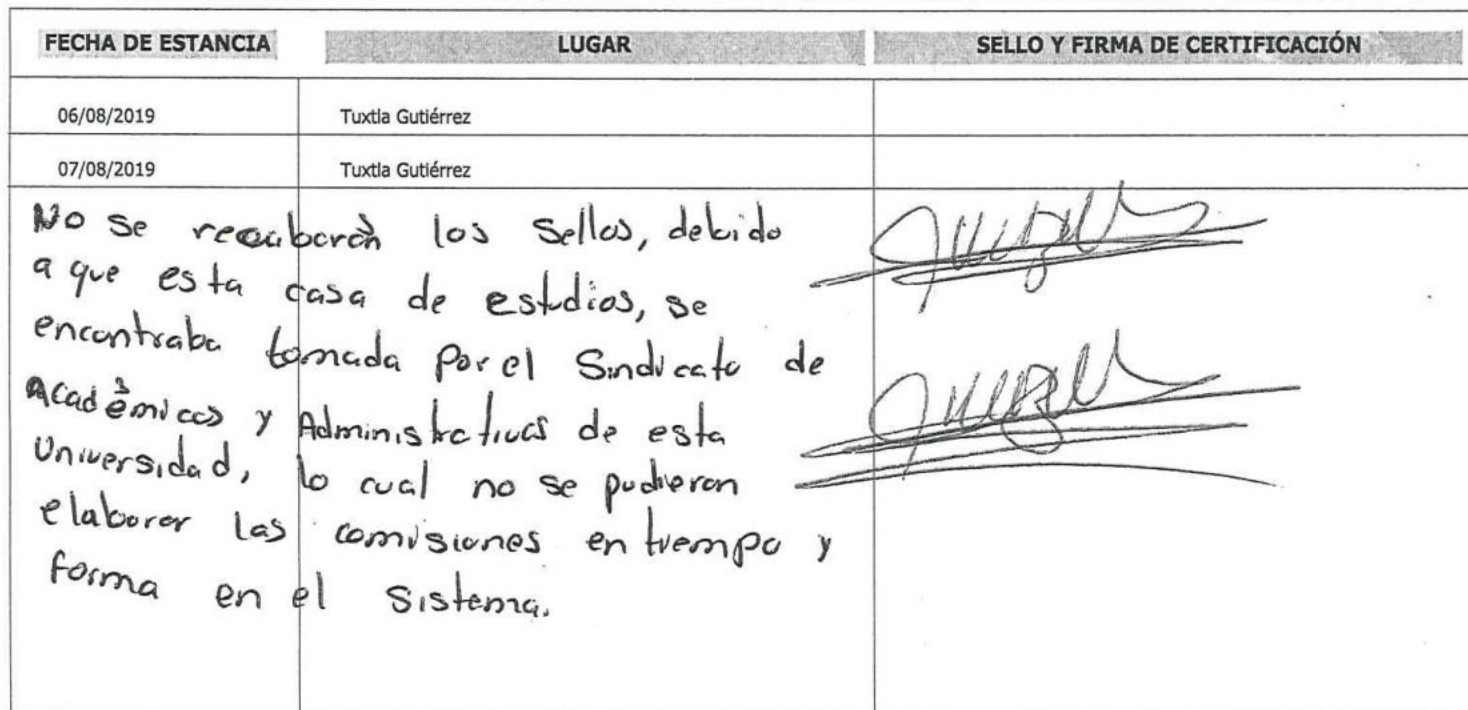 FECHA DE ESTANCIA LUGAR SELLO Y FIRMA DE CERTIFICACIÓN
06/08/2019 Tuxtla Gutiérrez
07/08/2019 Tuxtla Gutiérrez
No se recabarón los sellos, debido
a que esta casa de estudios, se
encontraba tomada por el Sindicato de
Académicos y Administrativos de esta
Universidad, lo cual no se pudieron
elaborar las comisiones en tiempo y
forma en el sistema.